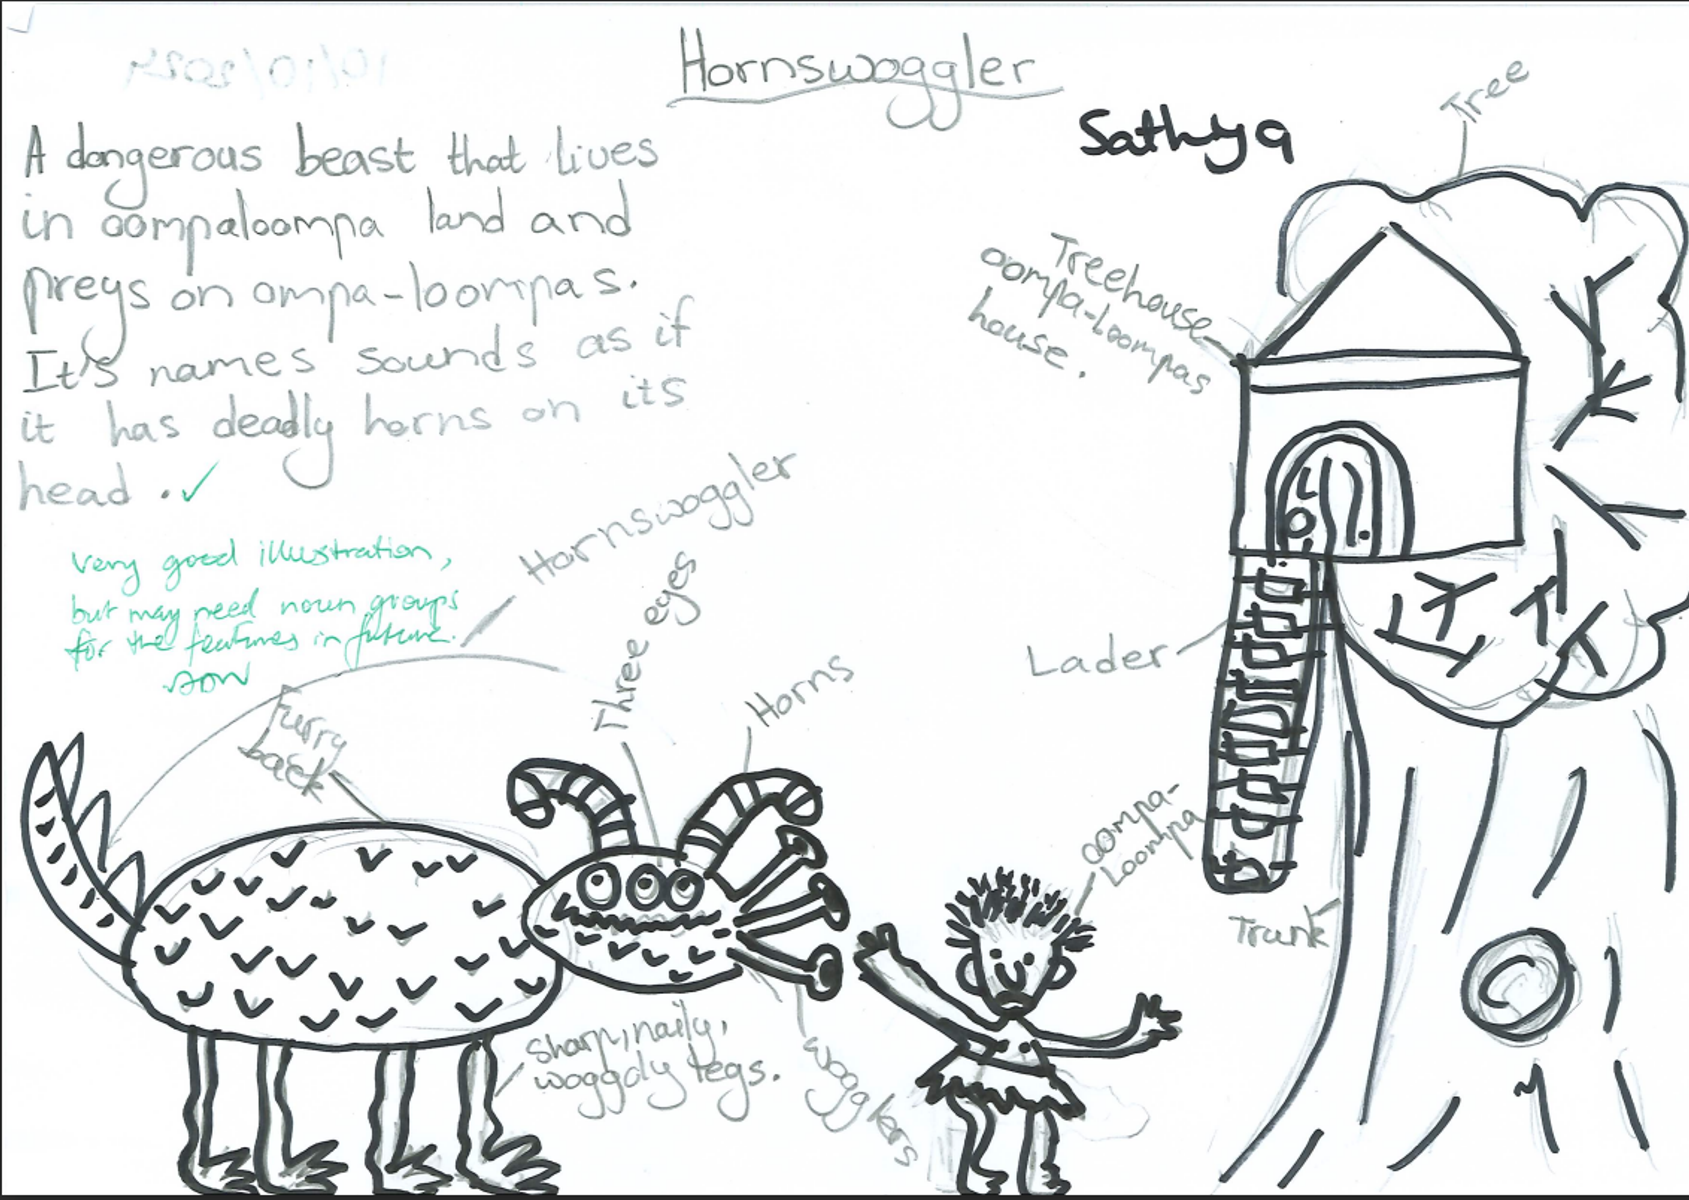 Hornswoggler
Sathya
A dangerous beast that lives
in oompaloompa land and
preys on ompa-loompas.
It's names sounds as if
it has deadly horns on its
head.
very good illustration,
but may need noun groups
for the features in future.
Hornswoggler
Three eyes
Horns
Furry
back
sharp, naily,
woggoly legs.
wogglers
oompa-
Loompa
Tree
Treehouse
oompa-Loompas
house.
Lader
Trunk